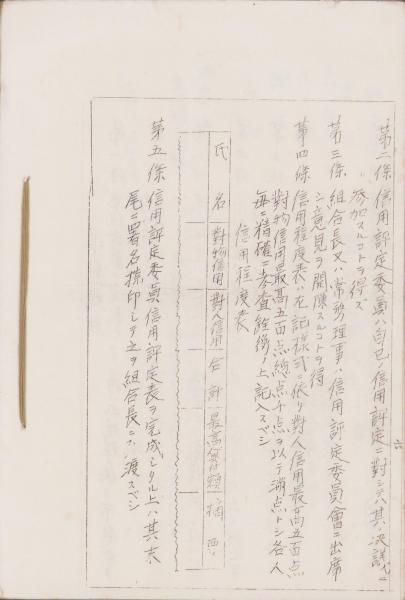 第二條 信用評定委員ハ自己ノ信用評定ニ對シテハ其ノ決議ニ
参加スルコトヲ得ズ
第三條 組合長又ハ常務理事ハ信用評定委員會ニ出席
シ意見ヲ開陳スルコトヲ得
第四條 信用程度表ハ左記様式ニ依リ對人信用最高五百点
對物信用最高五百点總点千点ヲ以テ満点トシ各人
毎ニ精確ニ参査銓衡ノ上記入スベシ
信用程度表
氏名 對物信用 對人信用 合計 最高額 摘要
第五條 信用評定委員信用評定表ヲ完成シタル上ハ其ノ末
尾ニ署名捺印シテ之ヲ組合長ニ渡スベシ
六